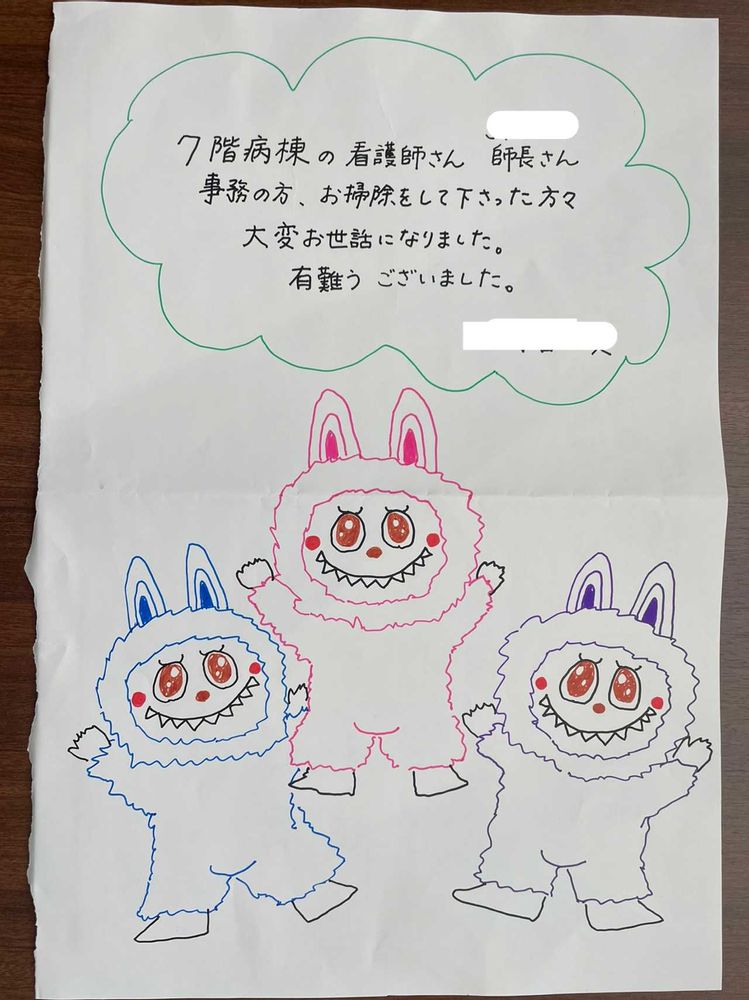 7階病棟の看護師さん 師長さん
事務の方、お掃除をして下さった方々
大変お世話になりました。
有難うございました。